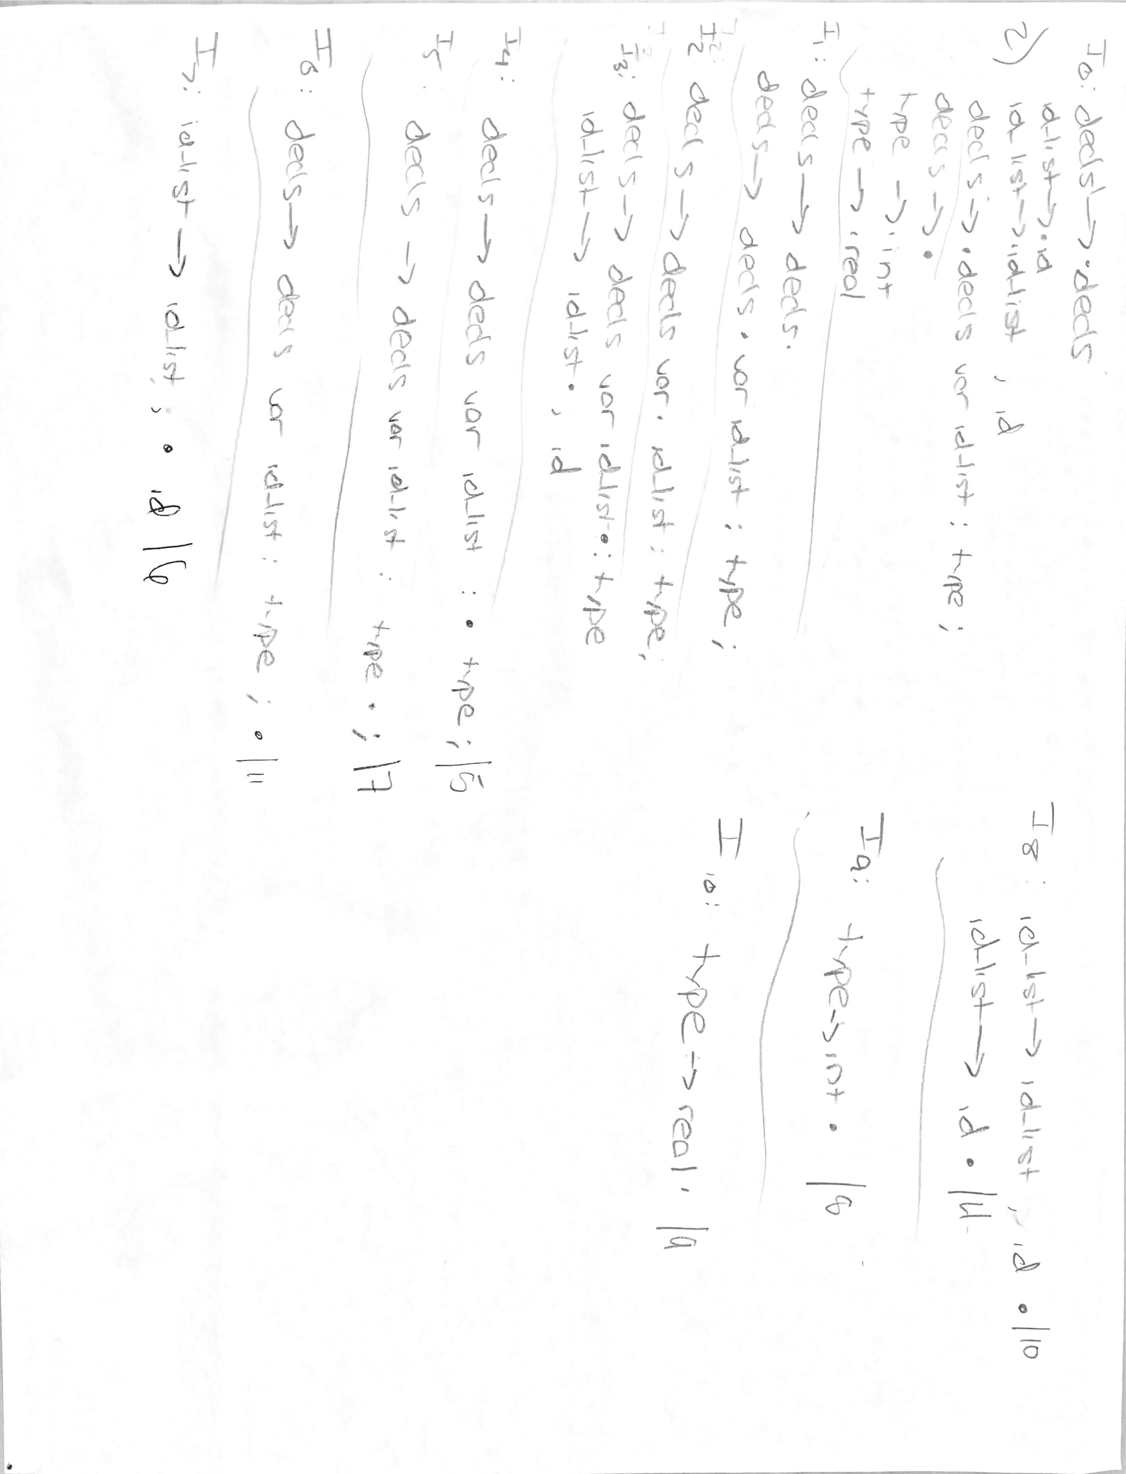 I0: decls' → . decls
id-list → . id
2) id-list → . id-list , id
decls → . decls var id-list : type ;
decls → .
type → . int
type → . real
I1: decls → decls .
decls → decls . var id-list : type ;
I2 decls → decls var . id-list : type ;
I3: decls → decls var id-list . : type
id-list → id-list . , id
I4: decls → decls var id-list : . type ; |5
I5 decls → decls var id-list : type . ; |7
I6: decls → decls var id-list : type ; . |11
I7: id-list → id-list , . id |6
I8: id-list → id-list , id . |10
id-list → id . |4
I9: type → int . |8
I10: type → real . |9